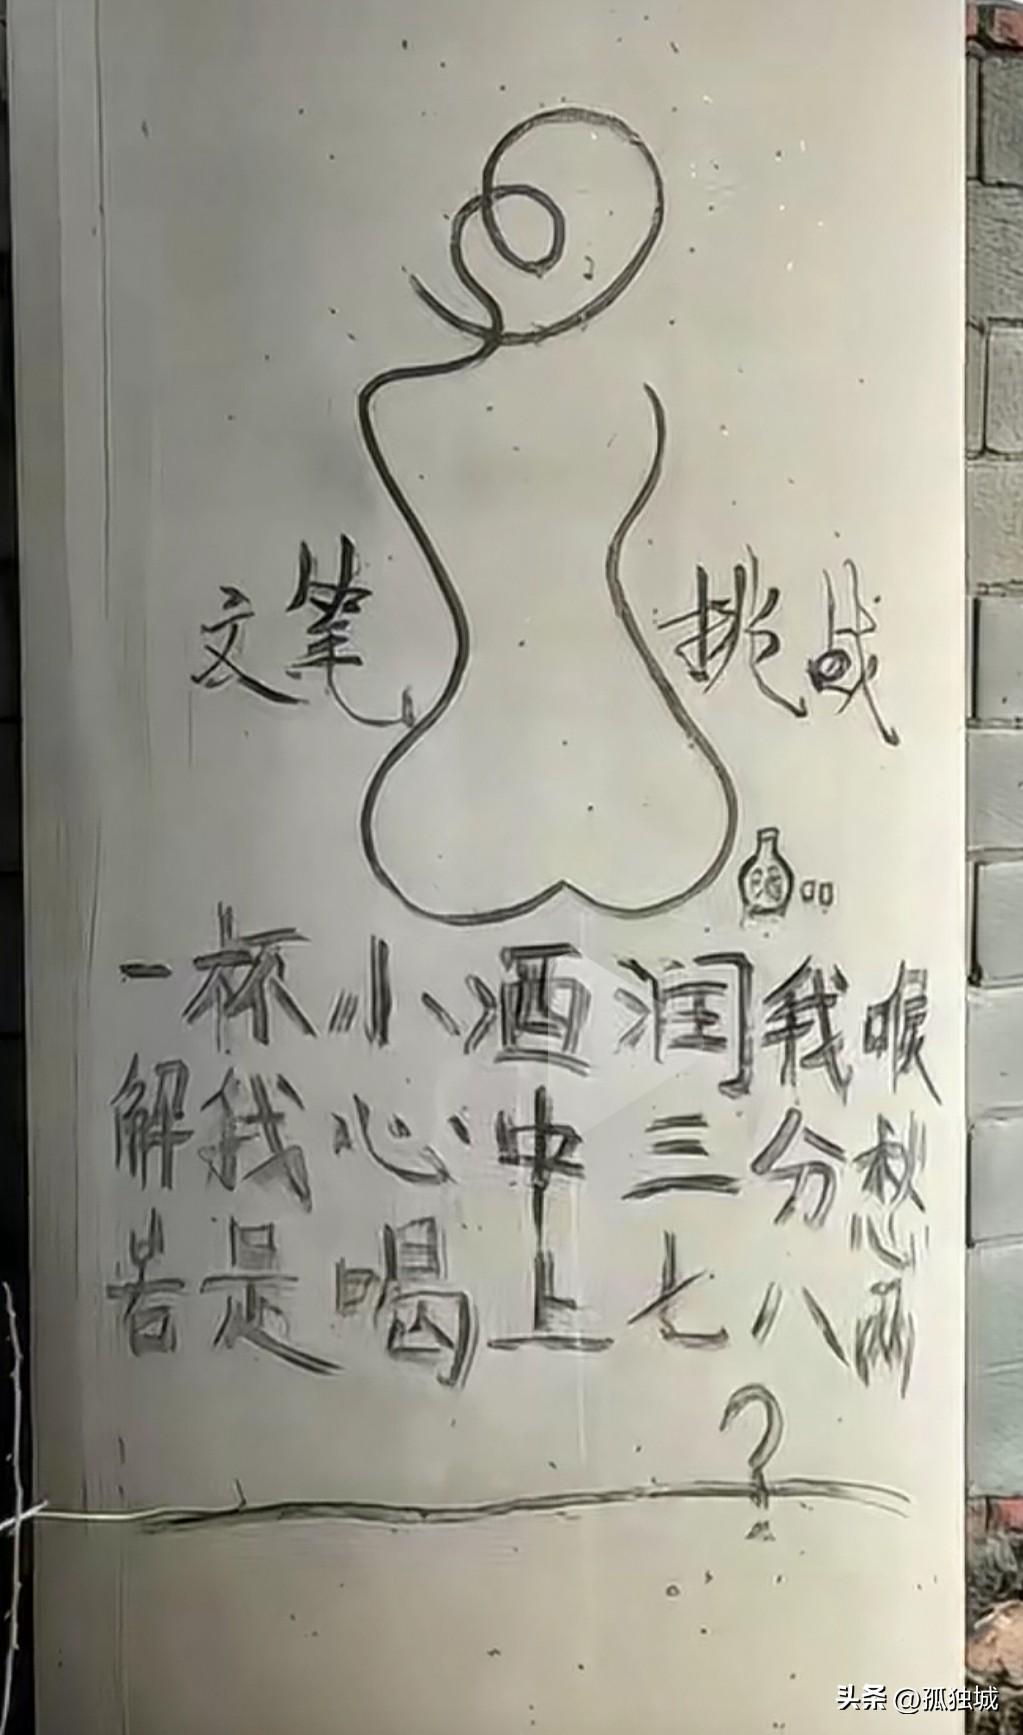 文笔 挑战
酒
一杯小酒润我喉
解我心中三分愁
若是喝上七八两
?
头条 @孤独城